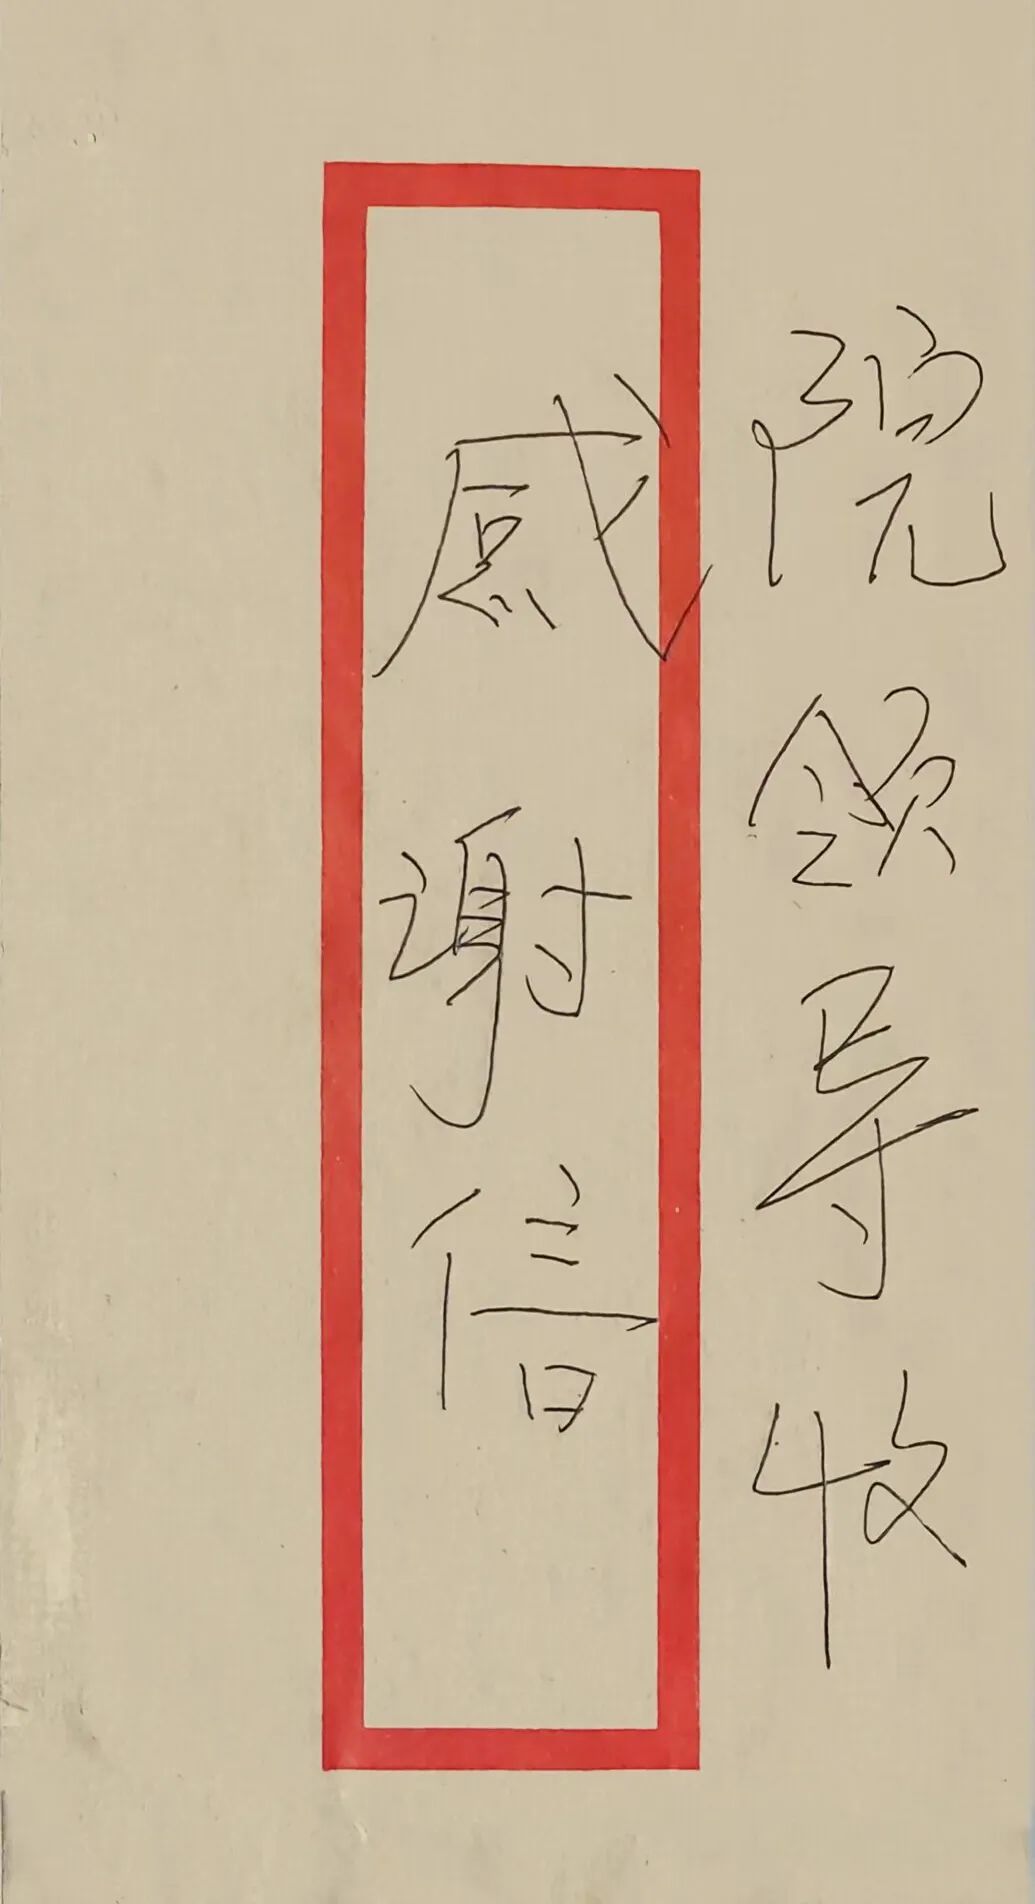 院领导收
感谢信